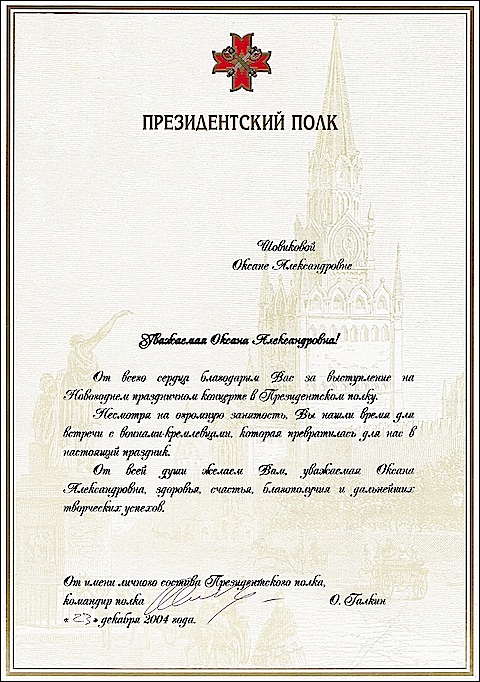 ПРЕЗИДЕНТСКИЙ ПОЛК
Шовиковой
Оксане Александровне
Уважаемая Оксана Александровна!
От всего сердца благодарим Вас за выступление на
Новогоднем праздничном концерте в Президентском полку.
Несмотря на огромную занятость, Вы нашли время для
встречи с воинами-кремлевцами, которая превратилась для нас в
настоящий праздник.
От всей души желаем Вам, уважаемая Оксана
Александровна, здоровья, счастья, благополучия и дальнейших
творческих успехов.
От имени личного состава Президентского полка,
командир полка О. Галкин
« 23 » декабря 2004 года.